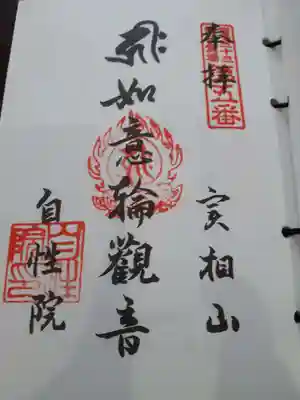 奉拝
実相山
如意輪觀音
自性院